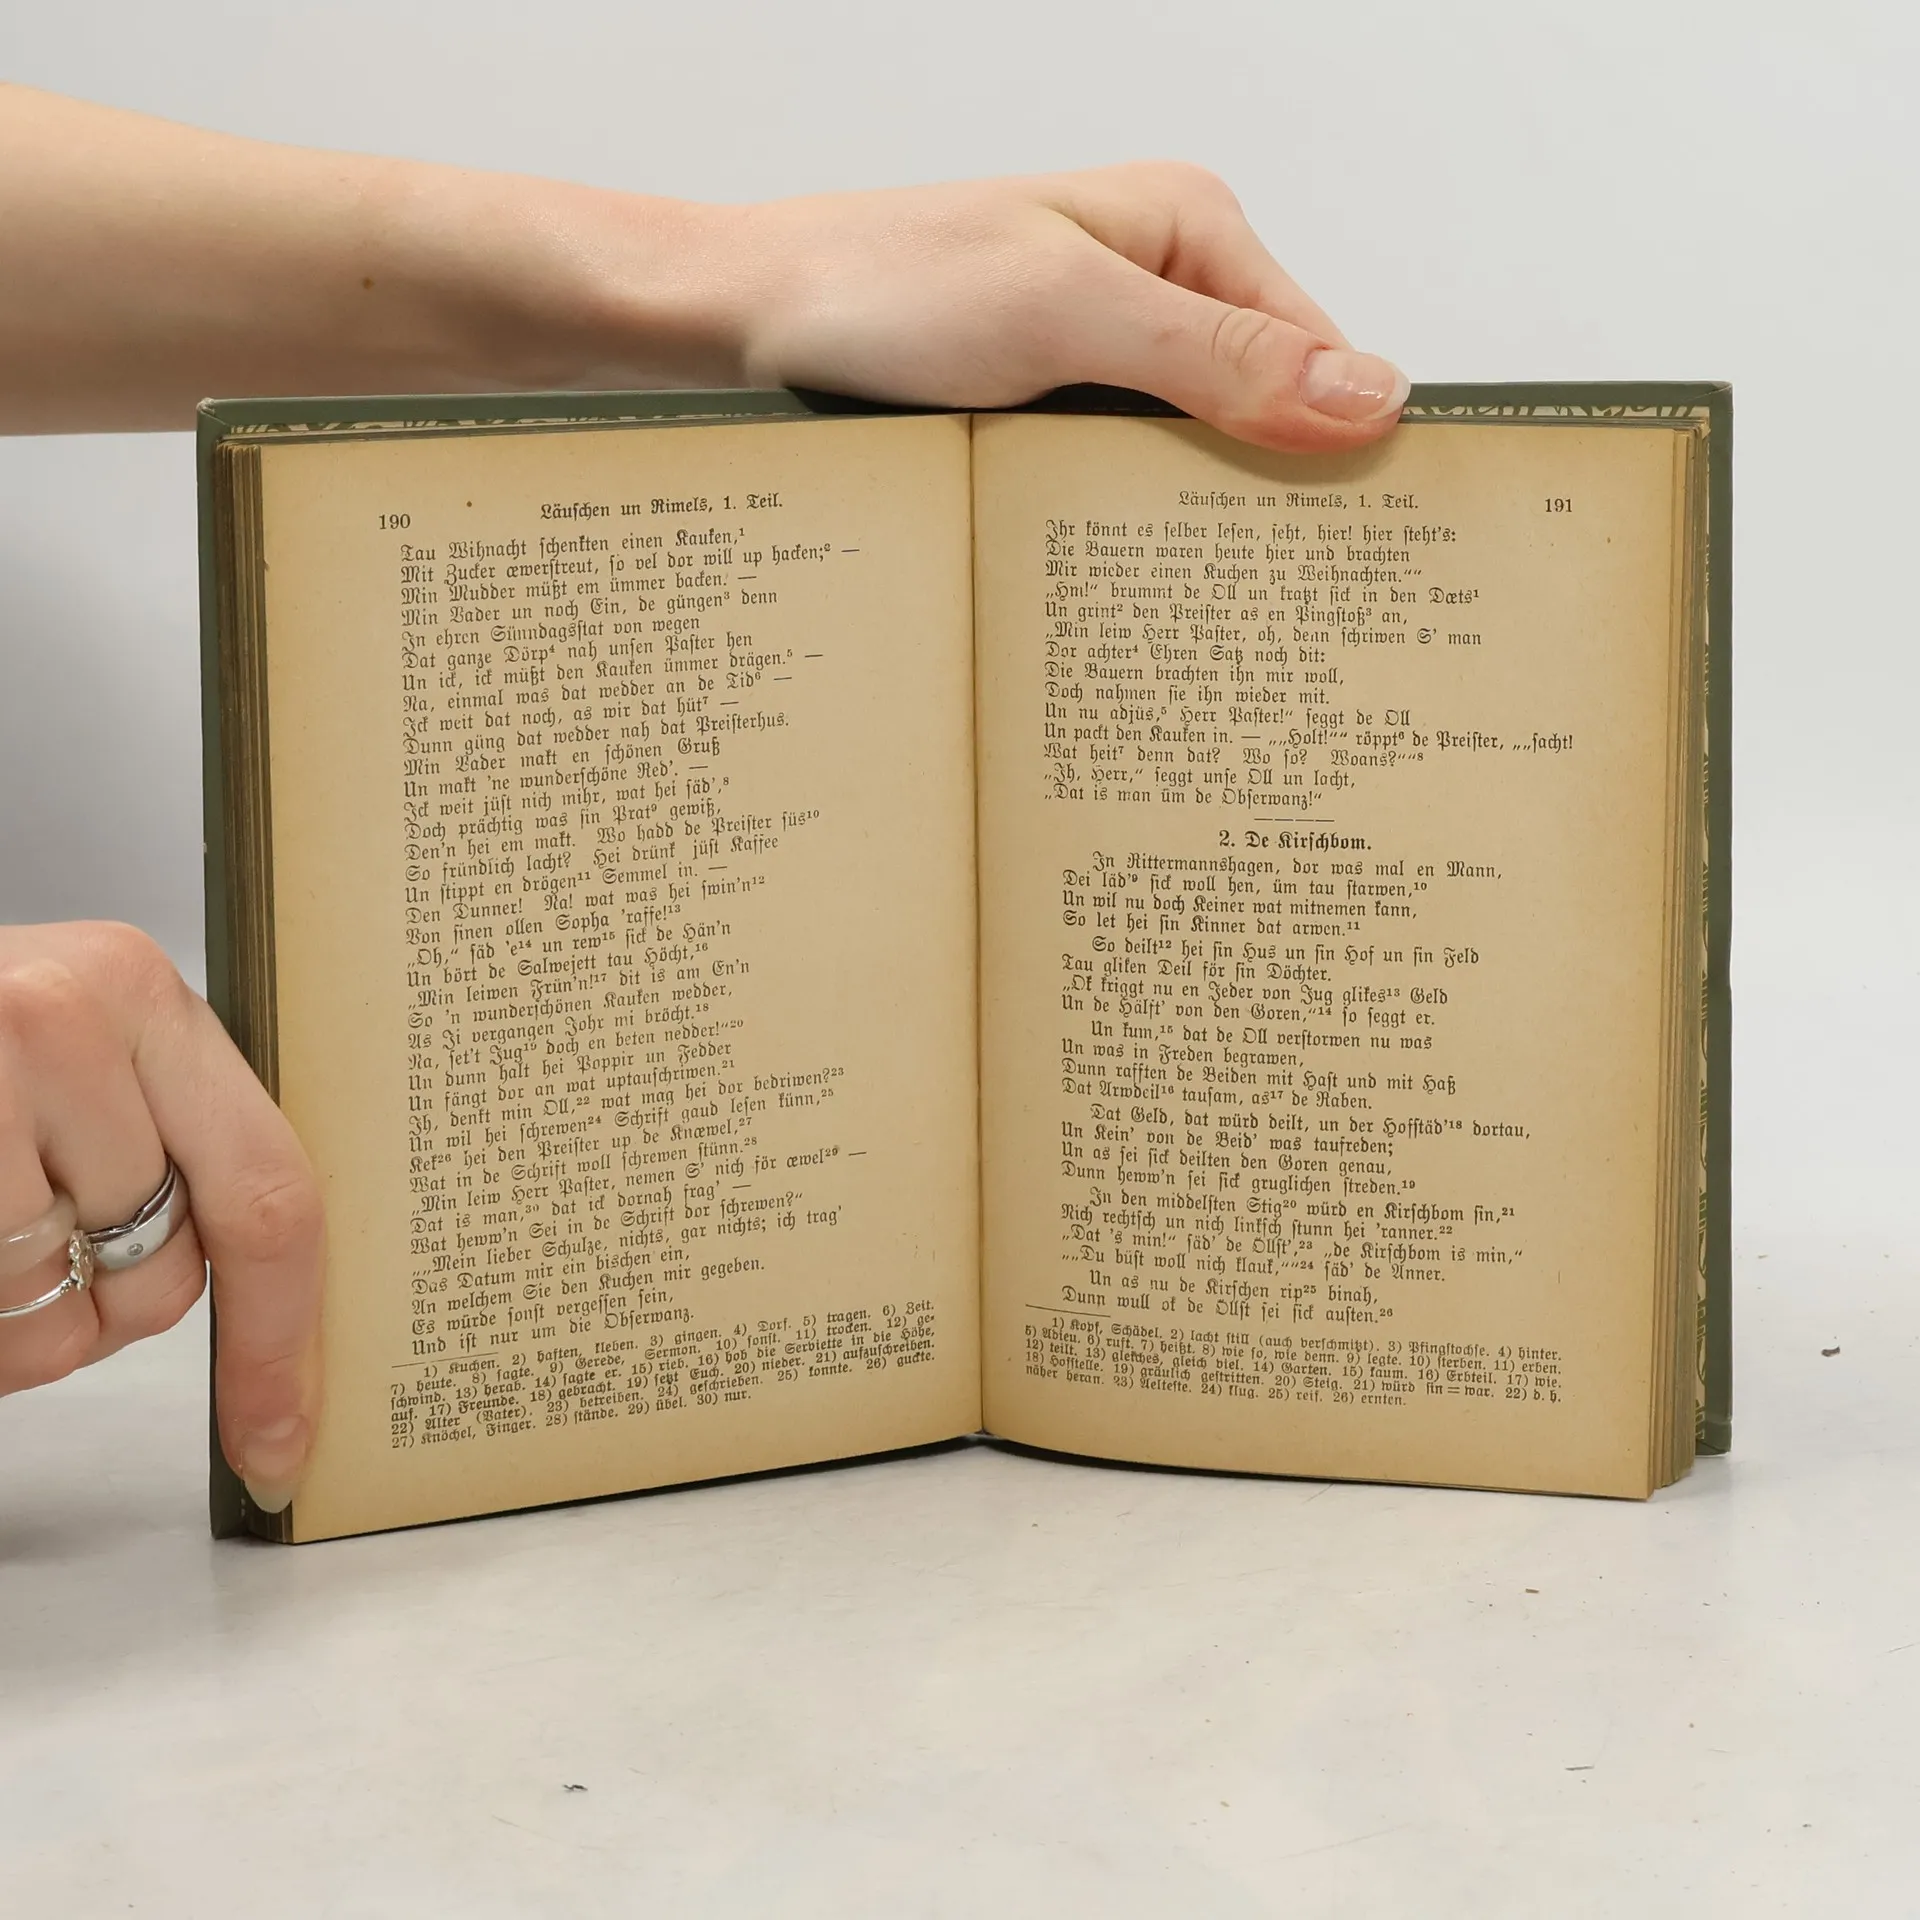 190
Läuschen un Rimels, 1. Teil.
Tau Wihnacht schenkten einen Kauken,¹
Mit Zucker œwerstreut, so vel dor will up hacken;² —
Min Mudder müßt em ümmer backen. —
Min Vader un noch Ein, de güngen³ denn
In ehren Sünndagsstat von wegen
Dat ganze Dörp⁴ nah unsen Paster hen
Un ick, ick müßt den Kauken ümmer drägen.⁵ —
Na, einmal was dat wedder an de Tid⁶ —
Ick weit dat noch, as wir dat hüt⁷ —
Dunn güng dat wedder nah dat Preisterhus.
Min Vader makt en schönen Gruß
Un makt 'ne wunderschöne Red'. —
Ick weit jüst nich mihr, wat hei säd',⁸
Doch prächtig was sin Prat⁹ gewiß,
Den'n hei em makt. Wo hadd de Preister süs¹⁰
So fründlich lacht? Hei drünk jüst Kaffee
Un stippt en drögen¹¹ Semmel in. —
Den Dunner! Na! wat was hei swin'n¹²
Von sinen ollen Sopha 'raffe!¹³
„Oh,“ säd 'e¹⁴ un rew¹⁵ sick de Hän'n
Un bört de Salwejett tau Höcht,¹⁶
„Min leiwen Frün'n!¹⁷ dit is am En'n
So 'n wunderschönen Kauken wedder,
As Ji vergangen Johr mi bröcht.¹⁸
Na, set't Jug¹⁹ doch en beten nedder!“²⁰
Un dunn halt hei Poppir un Fedder
Un fängt dor an wat uptauschriwen.²¹
Ih, denkt min Oll,²² wat mag hei dor bedriwen?²³
Un wil hei schrewen²⁴ Schrift gaud lesen künn,²⁵
Kek²⁶ hei den Preister up de Knœwel,²⁷
Wat in de Schrift woll schrewen stünn.²⁸
„Min leiw Herr Paster, nemen S' nich för œwel²⁹ —
Dat is man,³⁰ dat ick dornah frag' —
Wat heww'n Sei in de Schrift dor schrewen?“
„„Mein lieber Schulze, nichts, gar nichts; ich trag'
Das Datum mir ein bischen ein,
An welchem Sie den Kuchen mir gegeben.
Es würde sonst vergessen sein,
Und ist nur um die Observanz.
1) Kuchen. 2) haften, kleben. 3) gingen. 4) Dorf. 5) tragen. 6) Zeit.
7) heute. 8) sagte. 9) Gerede, Sermon. 10) sonst. 11) trocken. 12) ge-
schwind. 13) herab. 14) sagte er. 15) rieb. 16) hob die Serviette in die Höhe,
auf. 17) Freunde. 18) gebracht. 19) setzt Euch. 20) nieder. 21) aufzuschreiben.
22) Alter (Vater). 23) betreiben. 24) geschrieben. 25) konnte. 26) guckte.
27) Knöchel, Finger. 28) stände. 29) übel. 30) nur.
Läuschen un Rimels, 1. Teil.
191
Ihr könnt es selber lesen, seht, hier! hier steht's:
Die Bauern waren heute hier und brachten
Mir wieder einen Kuchen zu Weihnachten.““
„Hm!“ brummt de Oll un kratzt sick in den Dœts¹
Un grint² den Preister as en Pingstoß³ an,
„Min leiw Herr Paster, oh, denn schriwen S' man
Dor achter⁴ Ehren Satz noch dit:
Die Bauern brachten ihn mir woll,
Doch nahmen sie ihn wieder mit.
Un nu adjüs,⁵ Herr Paster!“ seggt de Oll
Un packt den Kauken in. — „„Holt!““ röppt⁶ de Preister, „„sacht!
Wat heit⁷ denn dat? Wo so? Woans?““⁸
„Ih, Herr,“ seggt unse Oll un lacht,
„Dat is man üm de Obserwanz!“
2. De Kirschbom.
In Rittermannshagen, dor was mal en Mann,
Dei läd'⁹ sick woll hen, üm tau starwen,¹⁰
Un wil nu doch Keiner wat mitnemen kann,
So let hei sin Kinner dat arwen.¹¹
So deilt¹² hei sin Hus un sin Hof un sin Feld
Tau gliken Deil för sin Döchter.
„Ok kriggt nu en Jeder von Jug glikes¹³ Geld
Un de Hälft' von den Goren,“¹⁴ so seggt er.
Un kum,¹⁵ dat de Oll verstorwen nu was
Un was in Freden begrawen,
Dunn rafften de Beiden mit Hast und mit Haß
Dat Arwdeil¹⁶ tausam, as¹⁷ de Raben.
Dat Geld, dat würd deilt, un der Hofstäd'¹⁸ dortau,
Un Kein' von de Beid' was taufreden;
Un as sei sick deilten den Goren genau,
Dunn heww'n sei sick gruglichen streden.¹⁹
In den middelsten Stig²⁰ würd en Kirschbom sin,²¹
Nich rechtsch un nich linksch stunn hei 'ranner.²²
„Dat 's min!“ säd' de Öllst',²³ „de Kirschbom is min,“
„„Du büst woll nich klauk,““²⁴ säd' de Anner.
Un as nu de Kirschen rip²⁵ binah,
Dunn wull ok de Öllst sei sick austen.²⁶
1) Kopf, Schädel. 2) lacht still (auch verschmitzt). 3) Pfingstochse. 4) hinter.
5) Adieu. 6) ruft. 7) heißt. 8) wie so, wie denn. 9) legte. 10) sterben. 11) erben.
12) teilt. 13) gleiches, gleich viel. 14) Garten. 15) kaum. 16) Erbteil. 17) wie.
18) Hofstelle. 19) gräulich gestritten. 20) Steig. 21) würd sin = war. 22) d. h.
näher heran. 23) Aelteste. 24) klug. 25) reif. 26) ernten.